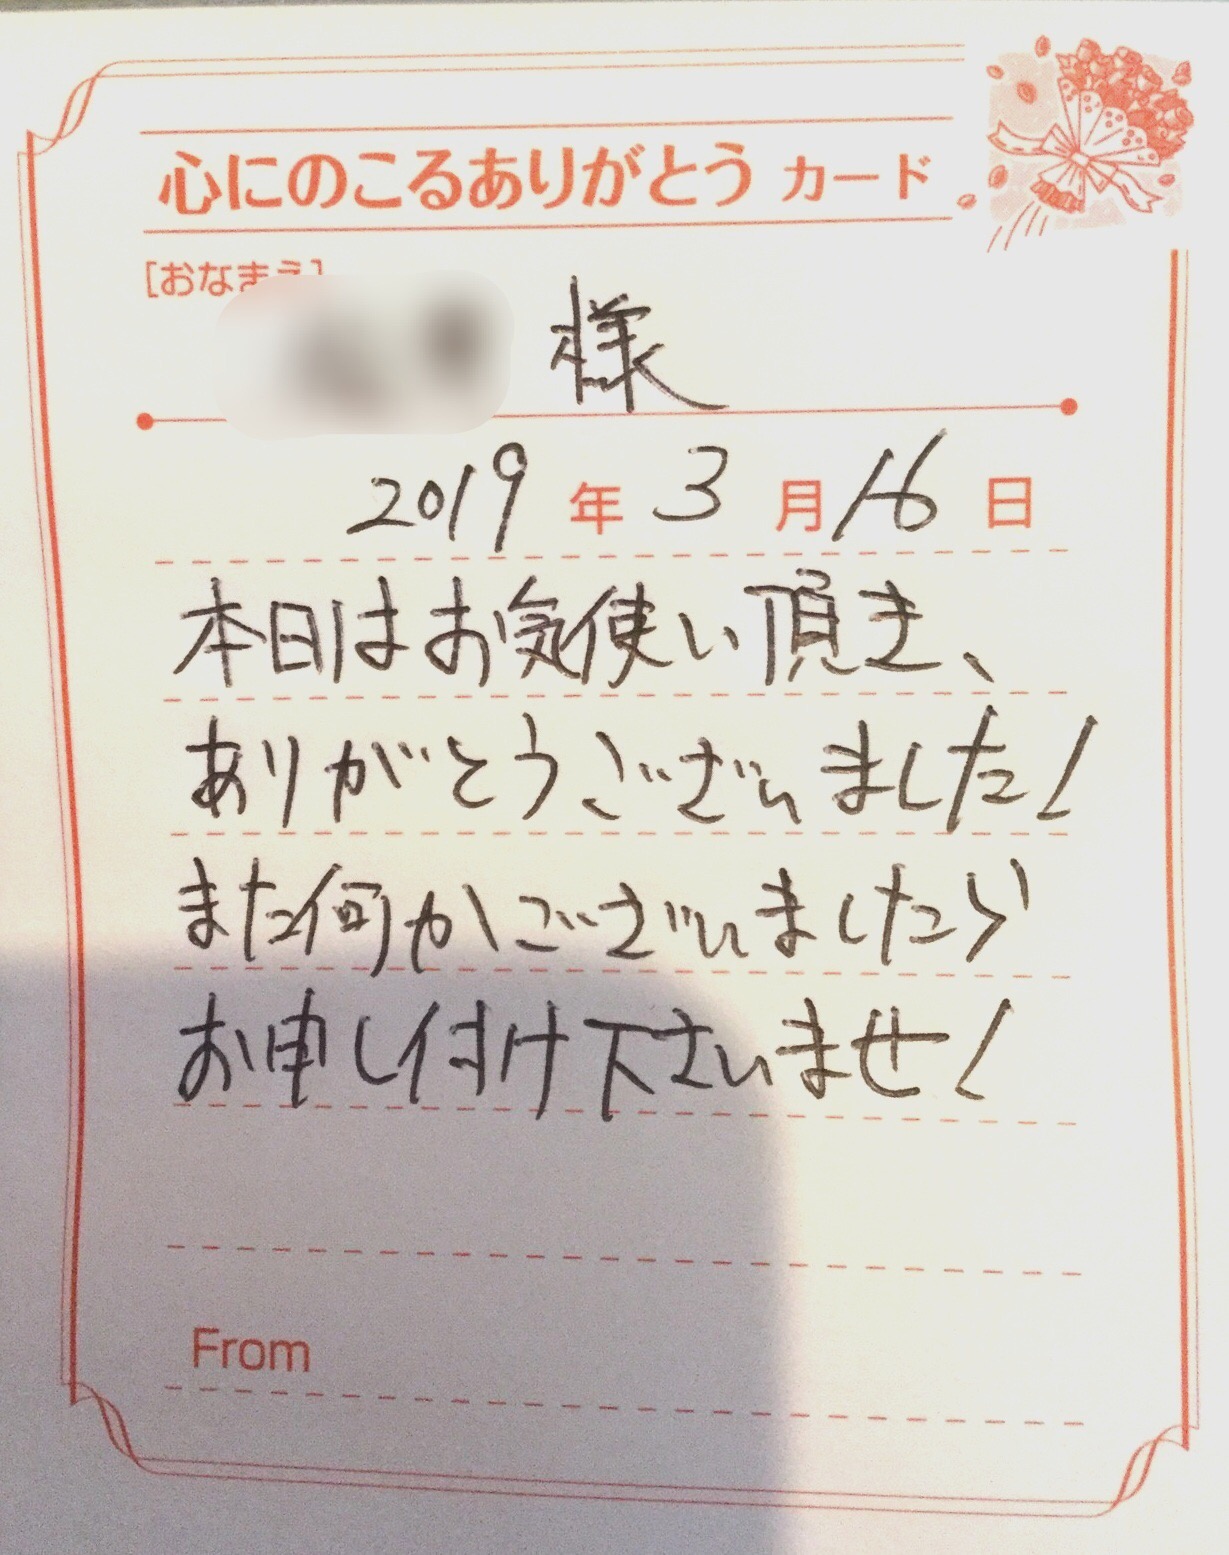 心にのこるありがとう カード
[おなまえ]
様
2019 年 3 月 16 日
本日はお気使い頂き、
ありがとうございました!
また何かございましたら
お申し付け下さいませ!
From